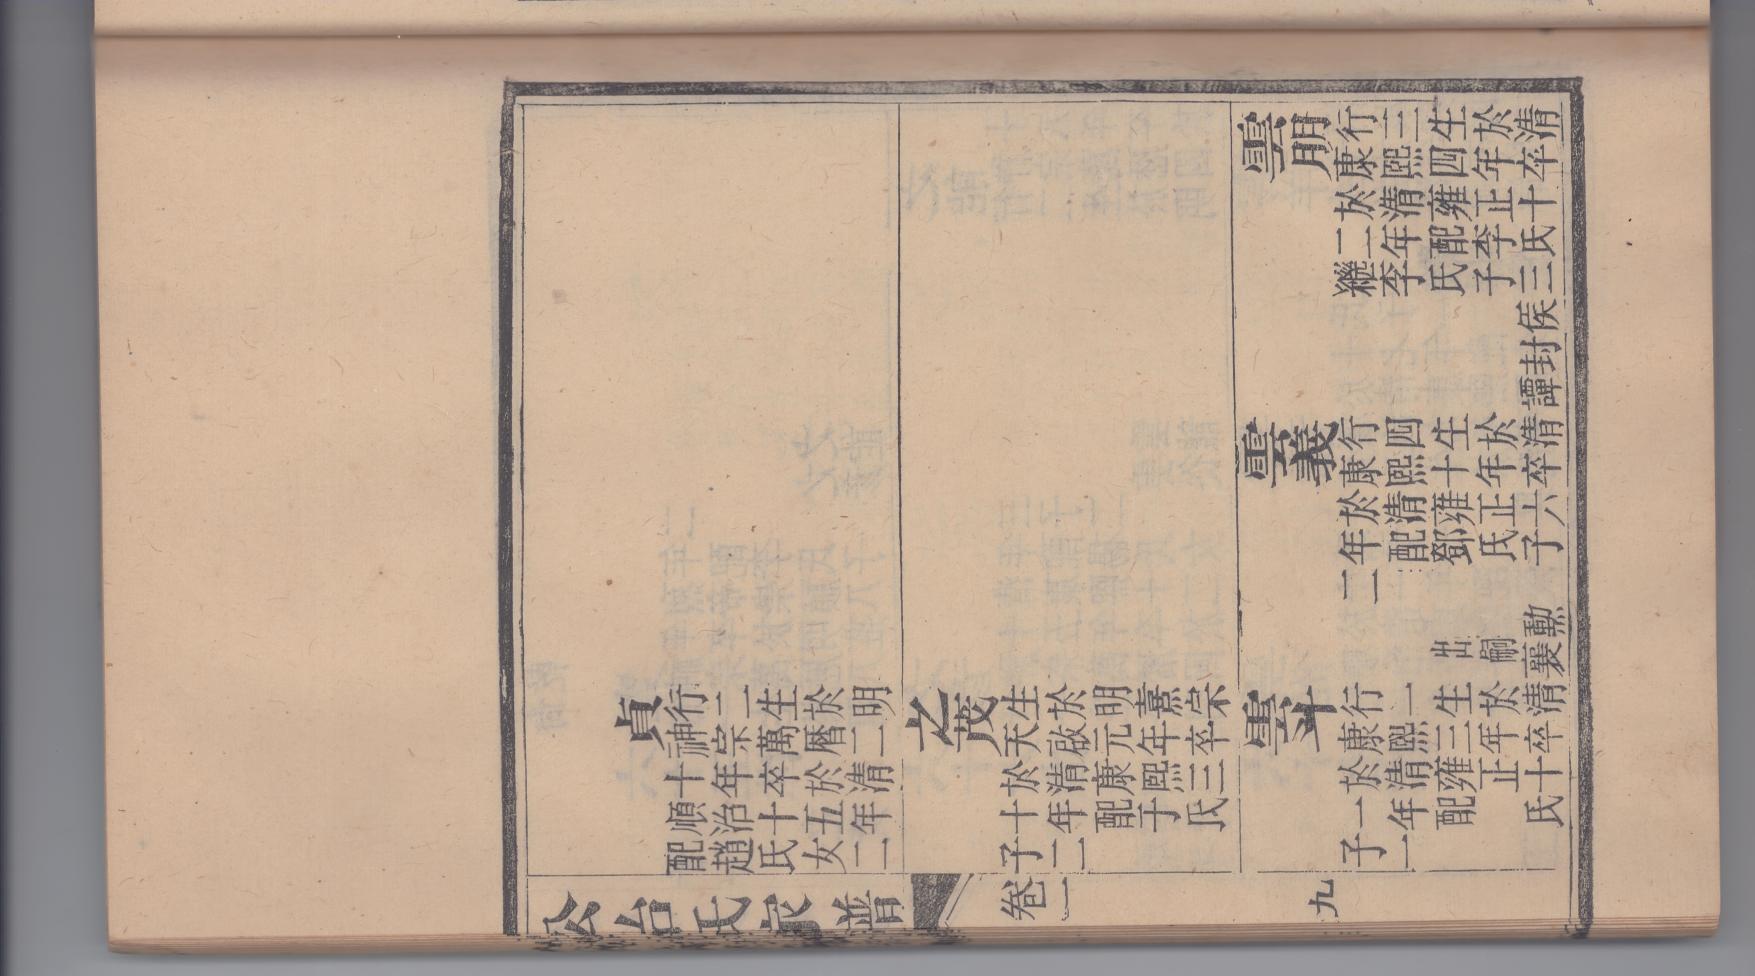 雲明
行三生於清
康熙四年卒
於清雍正十
二年配李氏
繼李氏子三
侯封譚
雲義
行四生於清
康熙十年卒
於清雍正六
年配鄧氏子
二
勳
出嗣襄
貞
行二生於明
神宗萬曆二
十年卒於清
順治十五年
配趙氏女二
之茂
生於明熹宗
天啟元年卒
於清康熙三
十年配于氏
子二
雲斗
行一生於清
康熙三年卒
於清雍正十
一年配氏
子一
公台氏家譜 卷一 九